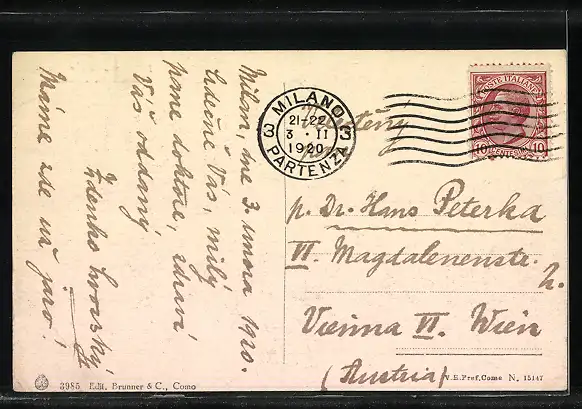 Milan, dne 3. února 1920.
Srdečně Vás, milý
pane doktore, zdraví
Váš oddaný
Zdenko
Máme zde už jaro!
MILANO
3 21-22 3
3 · II
1920
PARTENZA
POSTE ITALIANE
10 CENTESIMI 10
p. Dr. Hans Peterka
VI. Magdalenenstr. 2.
Vienna VI. Wien
(Austria)
3985 Edit. Brunner & C., Como
V.E.Pref.Como N. 15147